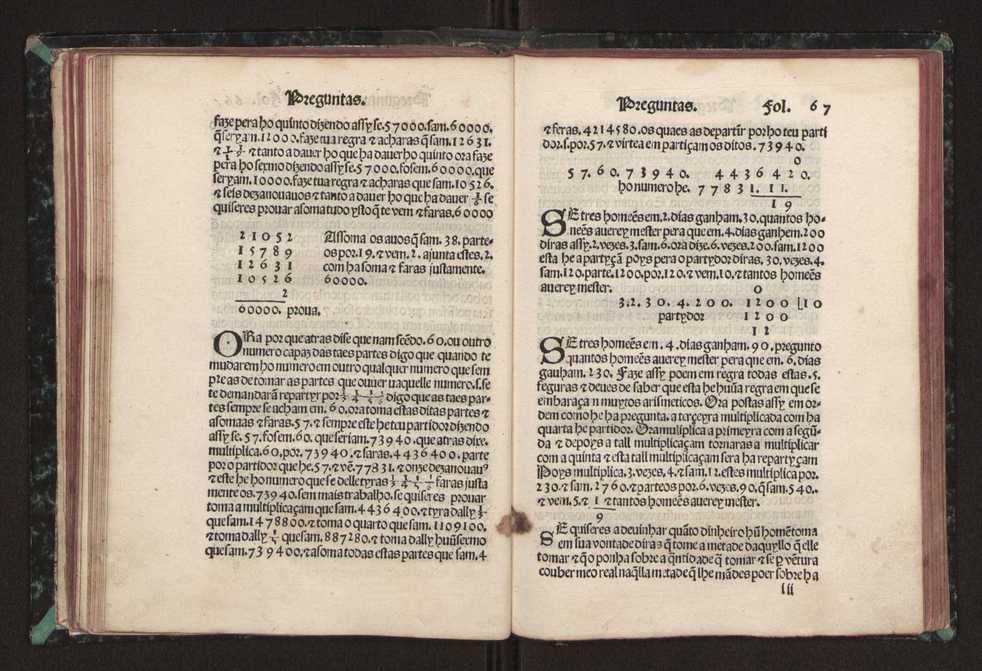 Preguntas.
faze pera ho quinto dizendo assy se.57000.sam.60000.
q̃ seryam.12000.faze tua regra ⁊ acharas q̃ sam.12631.
⁊ tanto a dauer ho que ha dauer ho quinto ora faze
pera ho sexmo dizendo assy se.57000.fosem.60000.que
seryam.10000.faze tua regra ⁊ acharas que sam.10526.
⁊ seis dezanouauos ⁊ tanto a dauer ho que ha dauer se
quiseres prouar asoma tudo ysto q̃ te vem ⁊ faras.60000
21052 Assoma os auos q̃ sam. 38. parte-
15789 os por.19.⁊ vem.2. ajunta estes.2.
12631 com ha soma ⁊ faras justamente.
10526 60000.
2
60000. proua.
ORa por que atras dise que nam sẽdo.60.ou outro
numero capaz das taes partes digo que quando te
mudarem ho numero em outro qualquer numero que sem
pre as de tomar as partes que ouuer naquelle numero.s.se
te demandarã repartyr por 1/3 1/4 1/5 1/6 digo que as taes par-
tes sempre se acham em. 60.ora toma estas ditas partes ⁊
asomaas ⁊ faras.57.⁊ sempre este he teu partidor dizendo
assy se. 57.fosem.60. que seriam.73940.que atras dixe.
multiplica.60.por.73940.⁊ faras.4436400.parte
por o partidor que he.57.⁊ vẽ.77831.⁊ onze dezanouauos
⁊ este he ho numero que se delle tyras 1/3 1/4 1/5 1/6 faras justa
mente os.73940.sem mais trabalho.se quiseres prouar
toma a multiplicaçam que sam.4436400.⁊ tyra dally 1/3
que sam.1478800.⁊ toma o quarto que sam.1109100.
⁊ toma dally 1/5 que sam.887280.⁊ toma dally huũ sexmo
que sam.739400.⁊ asoma todas estas partes que sam.4
Preguntas. Fol. 67
⁊ feras.4214580.os quaes as departir por ho teu parti
dor.s.por.57.⁊ virtea em partiçam os ditos.73940.
0
57.60.73940. 4436420.
ho numero he. 77831. 11.
19
SE tres homeẽs em.2.dias ganham.30.quantos ho-
meẽs auerey mester pera que em.4.dias ganhem.200
diras assy.2.vezes.3.sam.6.ora dize.6.vezes.200.sam.1200
esta he a partyçã poys pera o partydor diras.30.vezes.4.
sam.120.parte.1200.por.120.⁊ vem.10.⁊ tantos homeẽs
auerey mester.
0
3.2.30.4.200. 1200 |10
partydor 1200
12
SE tres homeẽs em.4.dias ganham.90.pregunto
quantos homeẽs auerey mester pera que em.6.dias
ganham.230. Faze assy poem em regra todas estas.5.
feguras ⁊ deues de saber que esta he huũa regra em que se
embaraça n muytos arismeticos. Ora postas assy em or-
dem como he ha pregunta.a terçeyra multiplicada com ha
quarta he partidor. Ora multiplica a primeyra com a segũ-
da ⁊ depoys a tall multiplicaçam tornaras a multiplicar
com a quinta ⁊ esta tall multiplicaçam sera ha repartyçam
Poys multiplica.3.vezes.4.⁊ sam.12.estes multiplica por.
230.⁊ sam.2760.⁊ parteos por.6.vezes.90.q̃ sam.540.
⁊ vem.5.⁊ 1 ⁊ tantos homeẽs auerey mester.
9
SE quiseres adeuinhar quãto dinheiro hũ homẽ toma
em sua vontade diras q̃ tome a metade daquyllo q̃ elle
tomar ⁊ q̃ o ponha sobre a q̃ntidade q̃ tomar ⁊ se p vẽtura
couber meo real naq̃lla metade q̃ lhe mãdes poer sobre ha
Iii